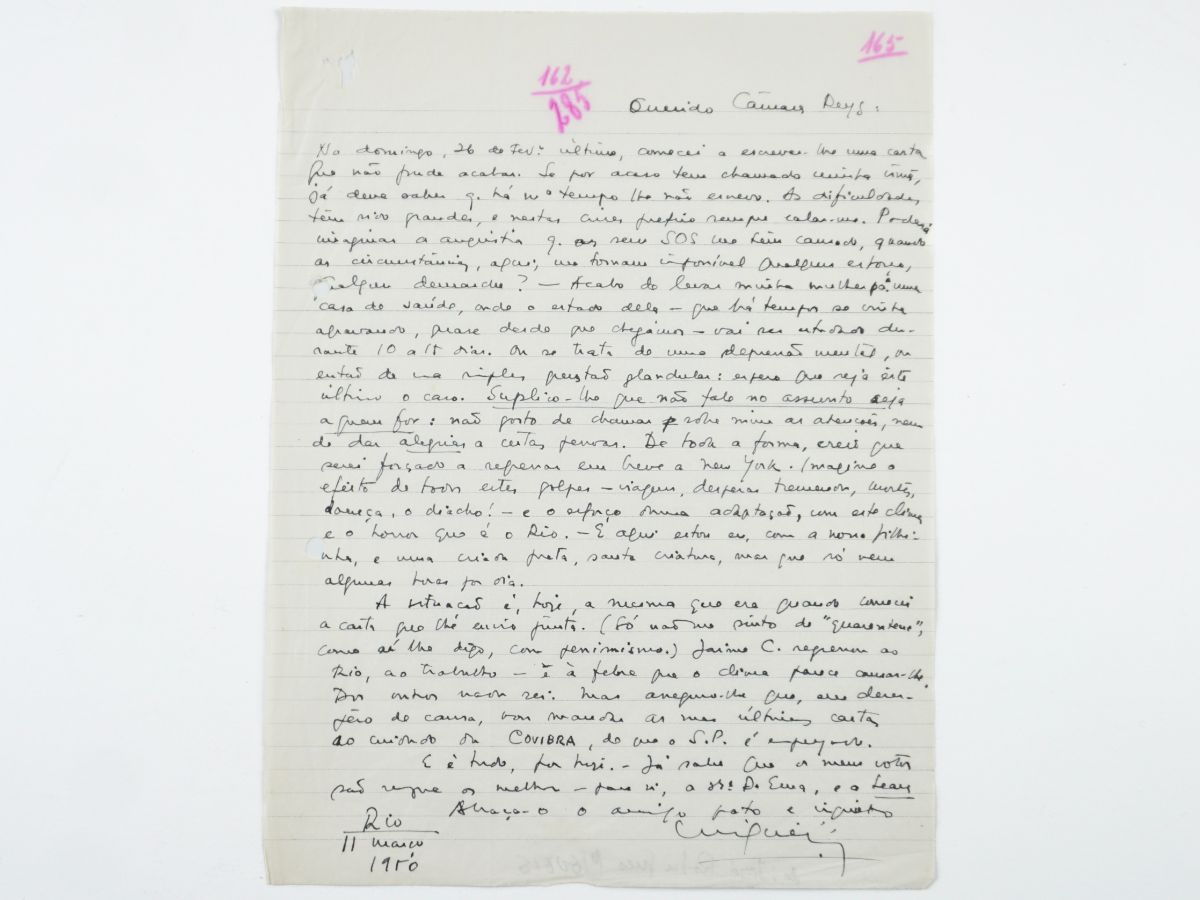 165
162
285
Querido Câmara Reys:
No domingo, 26 de Fev.º último, comecei a escrever-lhe uma carta
que não pude acabar. Se por acaso tem chamado minha irmã,
já deve saber q. há m.º tempo lhe não escrevo. As dificuldades
têm sido grandes, e nestas crises prefiro sempre calar-me. Poderá
imaginar a angústia q. os seus SOS me têm causado, quando
as circunstâncias, aqui, me tornam impossível qualquer esforço,
qualquer démarche? — Acabo de levar minha mulher pª uma
casa de saúde, onde o estado dela — que há tempos se vinha
agravando, quase desde que chegámos — vai ser estudado du-
rante 10 a 15 dias. Ou se trata de uma depressão mental, ou
então de uma simples questão glandular: espero que seja êste
último o caso. Suplico-lhe que não fale no assunto seja
a quem for: não gosto de chamar sobre mim as atenções, nem
de dar alegrias a certas pessoas. De toda a forma, creio que
serei forçado a regressar em breve a New York. Imagine o
efeito de todos estes golpes — viagem, despesas tremendas, mortes,
doença, o diacho! — e o esforço duma adaptação, com este clima
e o horror que é o Rio. — E aqui estou eu, com a nossa filhi-
nha, e uma criada preta, santa criatura, mas que só vem
algumas horas por dia.
A situação é, hoje, a mesma que era quando comecei
a carta que lhe envio junta. (Só não me sinto de "quarentena",
como aí lhe digo, com pessimismo.) Jaime C. regressou ao
Rio, ao trabalho — e à febre que o clima parece causar-lhe.
Dos outros nada sei. Mas asseguro-lhe que, em deses-
pêro de causa, vou mandar as suas últimas cartas
ao cuidado da COVIBRA, de que o S.P. é empregado.
E é tudo, por hoje. — Já sabe que os meus votos
são sempre os melhores — para si, a Sr.ª D. Ema, e a Seara
Abraça-o o amigo grato e
Miguéis
Rio
11 março
1950